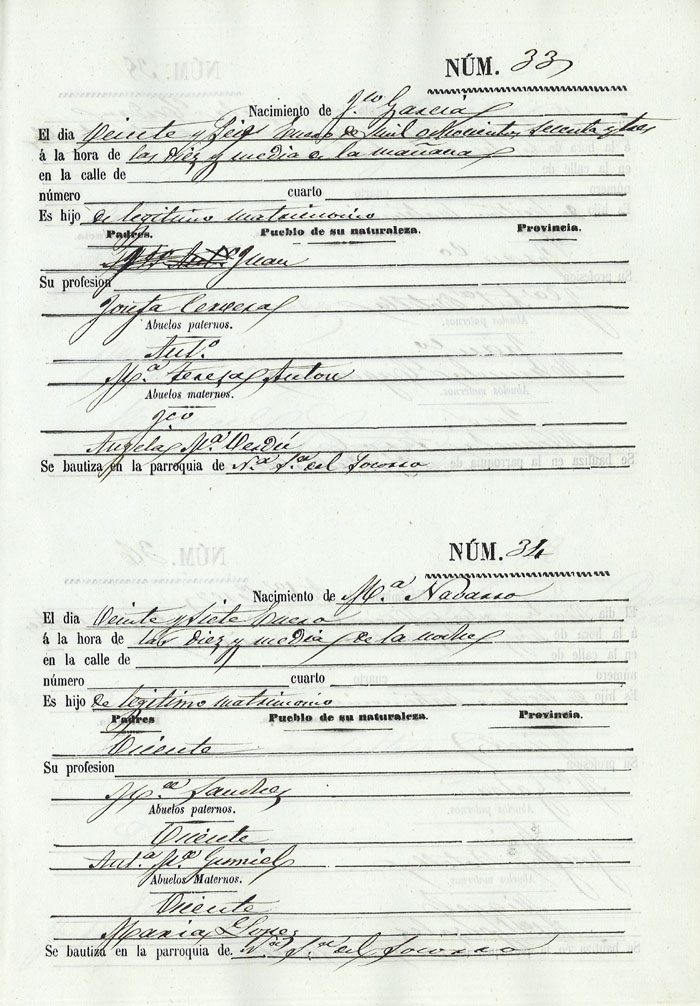 NÚM. 33
Nacimiento de Fco Garcia
El dia Veinte y Seis Enero de mil ochocientos setenta y tres
á la hora de las diez y media de la mañana
en la calle de
número cuarto
Es hijo de legitimo matrimonio
Padres. Pueblo de su naturaleza. Provincia.
Juan
Su profesion
Josefa Cervera
Abuelos paternos.
Ant.o
M.a Teresa Anton
Abuelos maternos.
Fco
Angela M.a Verdú
Se bautiza en la parroquia de N.a S.ra del Socorro
NÚM. 34
Nacimiento de M.a Navarro
El dia Veinte y Siete Enero
á la hora de las diez y media de la noche
en la calle de
número cuarto
Es hijo de legitimo matrimonio
Padres Pueblo de su naturaleza. Provincia.
Vicente
Su profesion
M.a Sanchez
Abuelos paternos.
Vicente
Ant.a M.a Gumiel
Abuelos Maternos.
Vicente
Maria Lopez
Se bautiza en la parroquia de. N.ra S.ra del Socorro